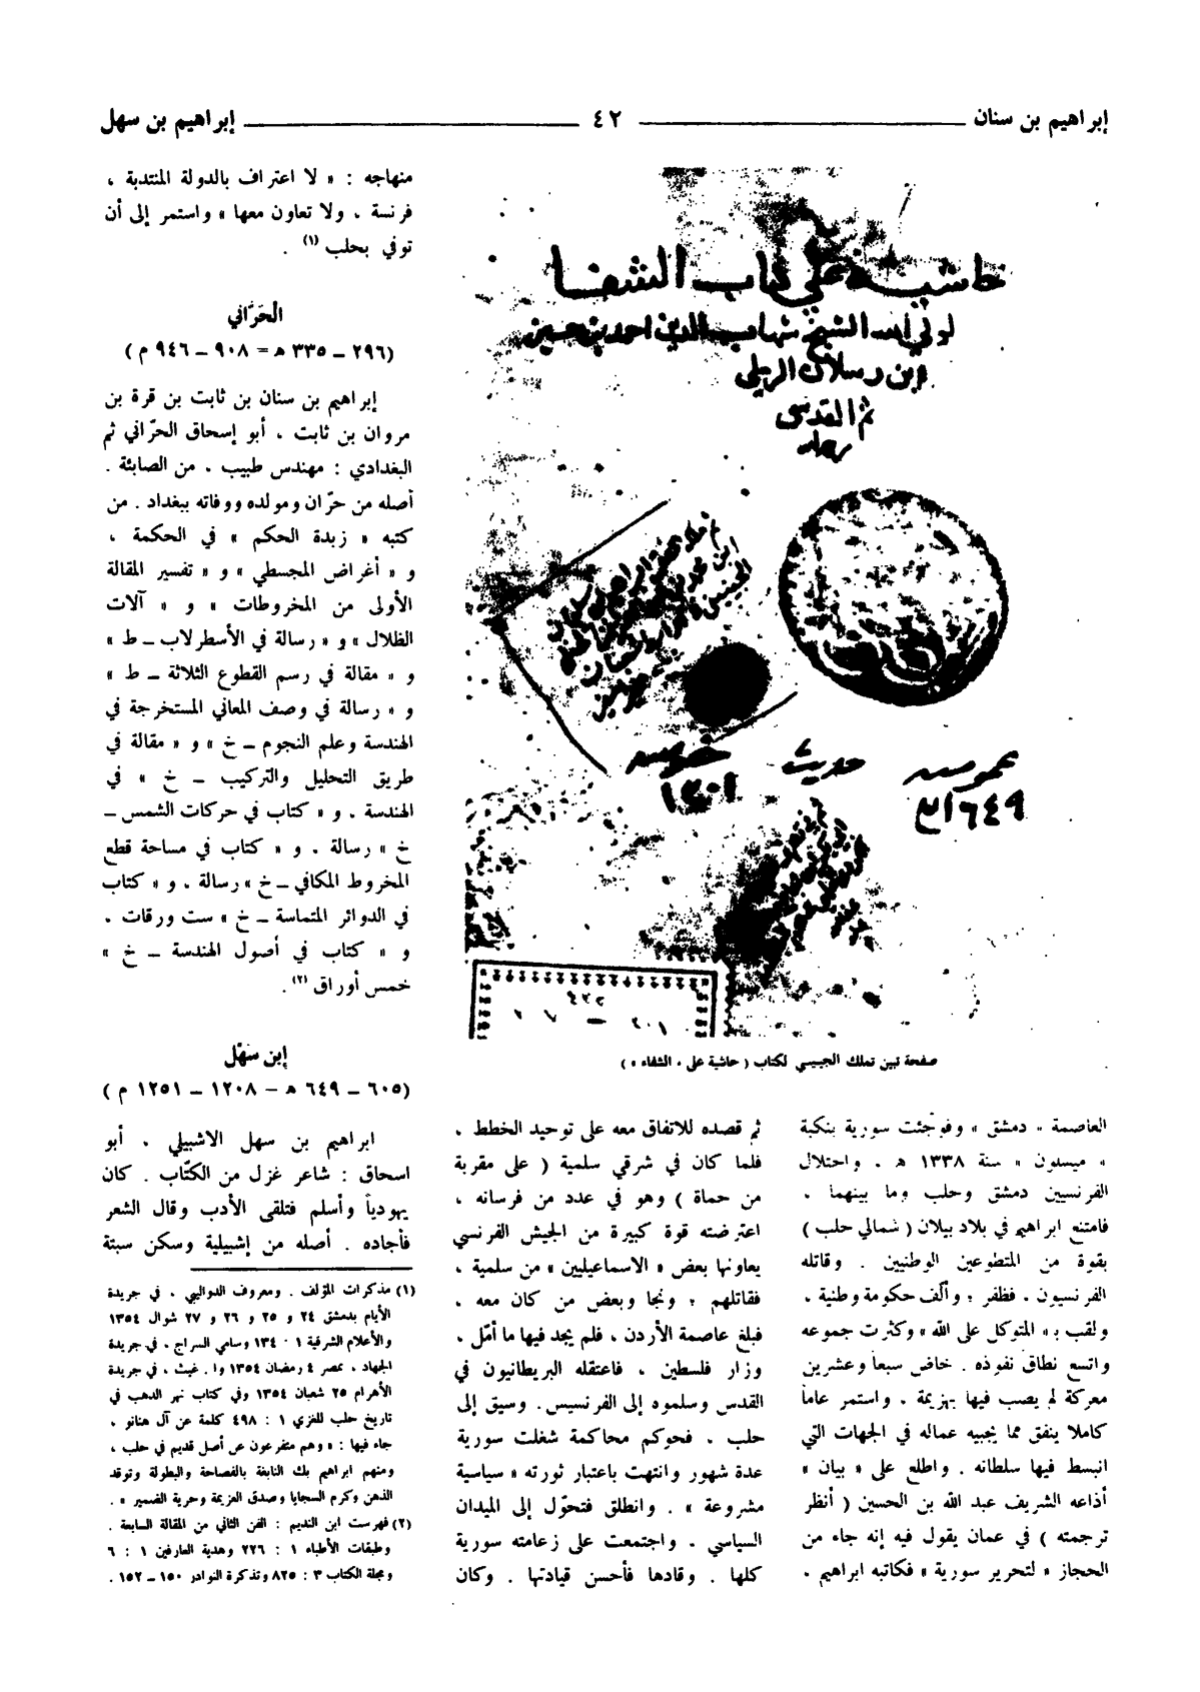 إبراهيم بن سنان ـــــــ ٤٢ ـــــــ إبراهيم بن سهل
حاشية على كتاب الشفا
لولي الله الشيخ شهاب الدين احمد بن حسين
ابن رسلان الرملي
ثم القدسي
حديث
عمومية
١٦٤٩
خصوصية
صفحة تبين تملك الجبيني لكتاب ( حاشية على « الشفاء » )
العاصمة « دمشق » وفوجئت سورية بنكبة
« ميسلون » سنة ١٣٣٨ هـ . واحتلال
الفرنسيين دمشق وحلب وما بينهما .
فامتنع ابراهيم في بلاد بيلان ( شمالي حلب )
بقوة من المتطوعين الوطنيين . وقاتله
الفرنسيون . فظفر ؛ وألّف حكومة وطنية .
ولقب بـ « المتوكل على الله » وكثرت جموعه
واتسع نطاق نفوذه . خاض سبعاً وعشرين
معركة لم يصب فيها بهزيمة . واستمر عاماً
كاملا ينفق مما يجبيه عماله في الجهات التي
انبسط فيها سلطانه . واطلع على « بيان »
أذاعه الشريف عبد الله بن الحسين ( أنظر
ترجمته ) في عمان يقول فيه إنه جاء من
الحجاز « لتحرير سورية » فكاتبه ابراهيم .
ثم قصده للاتفاق معه على توحيد الخطط .
فلما كان في شرقي سلمية ( على مقربة
من حماة ) وهو في عدد من فرسانه ،
اعترضته قوة كبيرة من الجيش الفرنسي
يعاونها بعض « الاسماعيليين » من سلمية ،
فقاتلهم ؛ ونجا وبعض من كان معه .
فبلغ عاصمة الأردن ، فلم يجد فيها ما أمّل .
وزار فلسطين ، فاعتقله البريطانيون في
القدس وسلموه إلى الفرنسيس . وسيق إلى
حلب . فحوكم محاكمة شغلت سورية
عدة شهور وانتهت باعتبار ثورته « سياسية
مشروعة » . وانطلق فتحوّل إلى الميدان
السياسي . واجتمعت على زعامته سورية
كلها . وقادها فأحسن قيادتها . وكان
منهاجه : « لا اعتراف بالدولة المنتدبة ،
فرنسة ، ولا تعاون معها » واستمر إلى أن
توفي بحلب (١) .
الحَرَّاني
(٢٩٦ ـ ٣٣٥ هـ = ٩٠٨ ـ ٩٤٦ م )
إبراهيم بن سنان بن ثابت بن قرة بن
مروان بن ثابت ، أبو إسحاق الحرّاني ثم
البغدادي : مهندس طبيب ، من الصابئة .
أصله من حرّان ومولده ووفاته ببغداد . من
كتبه « زبدة الحكم » في الحكمة ،
و « أغراض المجسطي » و « تفسير المقالة
الأولى من المخروطات » و « آلات
الظلال » و « رسالة في الأسطرلاب ـ ط »
و « مقالة في رسم القطوع الثلاثة ـ ط »
و « رسالة في وصف المعاني المستخرجة في
الهندسة وعلم النجوم ـ خ » و « مقالة في
طريق التحليل والتركيب ـ خ » في
الهندسة ، و « كتاب في حركات الشمس ـ
خ » رسالة . و « كتاب في مساحة قطع
المخروط المكافي ـ خ » رسالة ، و « كتاب
في الدوائر المتماسة ـ خ » ست ورقات .
و « كتاب في أصول الهندسة ـ خ »
خمس أوراق (٢) .
إبن سَهْل
(٦٠٥ ـ ٦٤٩ هـ = ١٢٠٨ ـ ١٢٥١ م )
ابراهيم بن سهل الاشبيلي ، أبو
اسحاق : شاعر غزل من الكتّاب . كان
يهودياً وأسلم فتلقى الأدب وقال الشعر
فأجاده . أصله من إشبيلية وسكن سبتة
(١) مذكرات المؤلف . ومعروف الدواليبي ، في جريدة
الأيام بدمشق ٢٤ و ٢٥ و ٢٦ و ٢٧ شوال ١٣٥٤
والأعلام الشرقية ١ : ١٣٤ وسامي السراج ، في جريدة
الجهاد ، بمصر ٤ رمضان ١٣٥٤ وا . غيث ، في جريدة
الأهرام ٢٥ شعبان ١٣٥٤ وفي كتاب نهر الذهب في
تاريخ حلب للغزي ١ : ٤٩٨ كلمة عن آل هنانو ،
جاء فيها : « وهم متفرعون عن أصل قديم في حلب ،
ومنهم ابراهيم بك النابغة بالفصاحة والبطولة وتوقد
الذهن وكرم السجايا وصدق العزيمة وحرية الضمير » .
(٢) فهرست ابن النديم : الفن الثاني من المقالة السابعة .
وطبقات الأطباء ١ : ٢٢٦ وهدية العارفين ١ : ٦
ومجلة الكتاب ٣ : ٨٢٥ وتذكرة النوادر ١٥٠ ـ ١٥٢ .